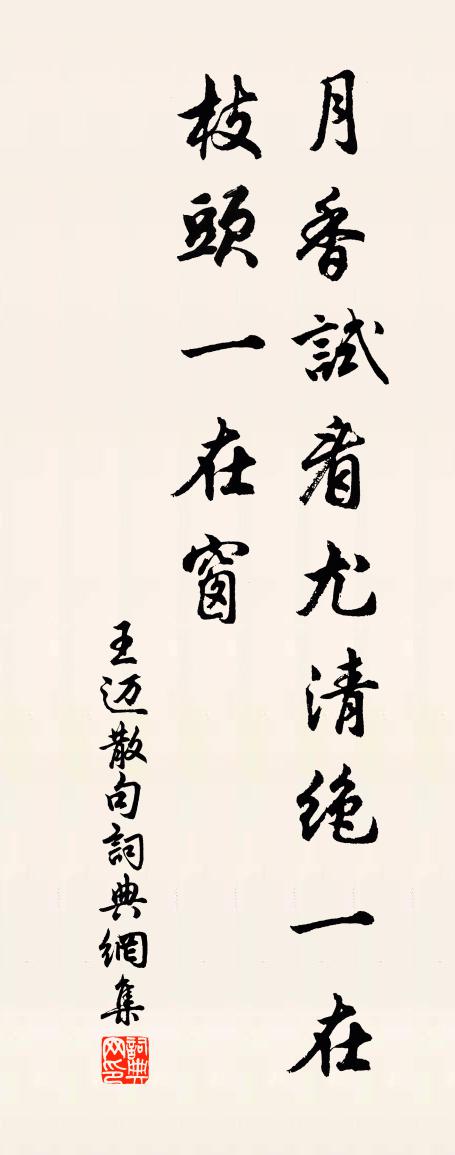 月香試看尤清絶一在
枝頭一在窗
王迈散句詞典網集
詞典网印